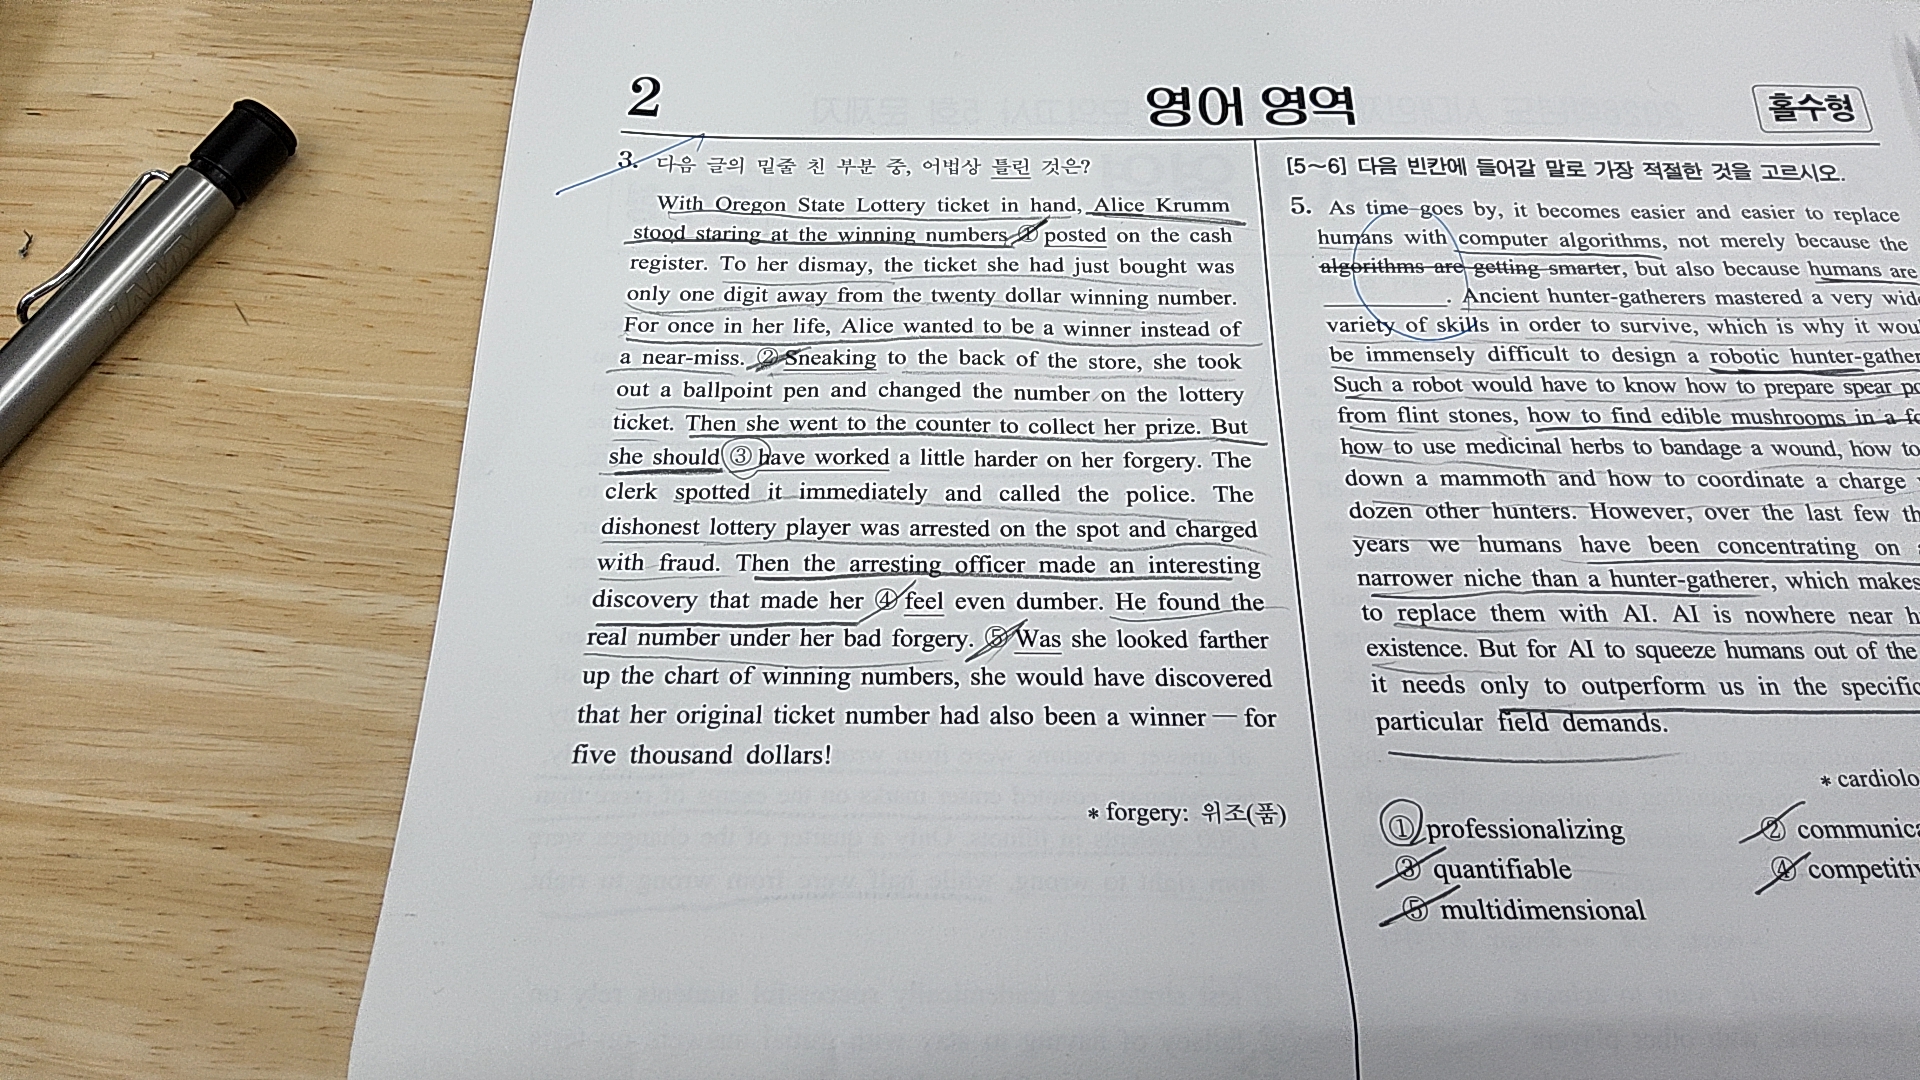 2
영어 영역
홀수형
3. 다음 글의 밑줄 친 부분 중, 어법상 틀린 것은?
With Oregon State Lottery ticket in hand, Alice Krumm
stood staring at the winning numbers ① posted on the cash
register. To her dismay, the ticket she had just bought was
only one digit away from the twenty dollar winning number.
For once in her life, Alice wanted to be a winner instead of
a near-miss. ② Sneaking to the back of the store, she took
out a ballpoint pen and changed the number on the lottery
ticket. Then she went to the counter to collect her prize. But
she should ③ have worked a little harder on her forgery. The
clerk spotted it immediately and called the police. The
dishonest lottery player was arrested on the spot and charged
with fraud. Then the arresting officer made an interesting
discovery that made her ④ feel even dumber. He found the
real number under her bad forgery. ⑤ Was she looked farther
up the chart of winning numbers, she would have discovered
that her original ticket number had also been a winner — for
five thousand dollars!
* forgery: 위조(품)
[5~6] 다음 빈칸에 들어갈 말로 가장 적절한 것을 고르시오.
5. As time goes by, it becomes easier and easier to replace
humans with computer algorithms, not merely because the
algorithms are getting smarter, but also because humans are
. Ancient hunter-gatherers mastered a very
variety of skills in order to survive, which is why it
be immensely difficult to design a robotic
Such a robot would have to know how to prepare spear
from flint stones, how to find edible mushrooms in a
how to use medicinal herbs to bandage a wound, how to
down a mammoth and how to coordinate a charge
dozen other hunters. However, over the last few
years we humans have been concentrating on
narrower niche than a hunter-gatherer, which makes
to replace them with AI. AI is nowhere near
existence. But for AI to squeeze humans out of the
it needs only to outperform us in the
particular field demands.
*
① professionalizing
②
③ quantifiable
④
⑤ multidimensional